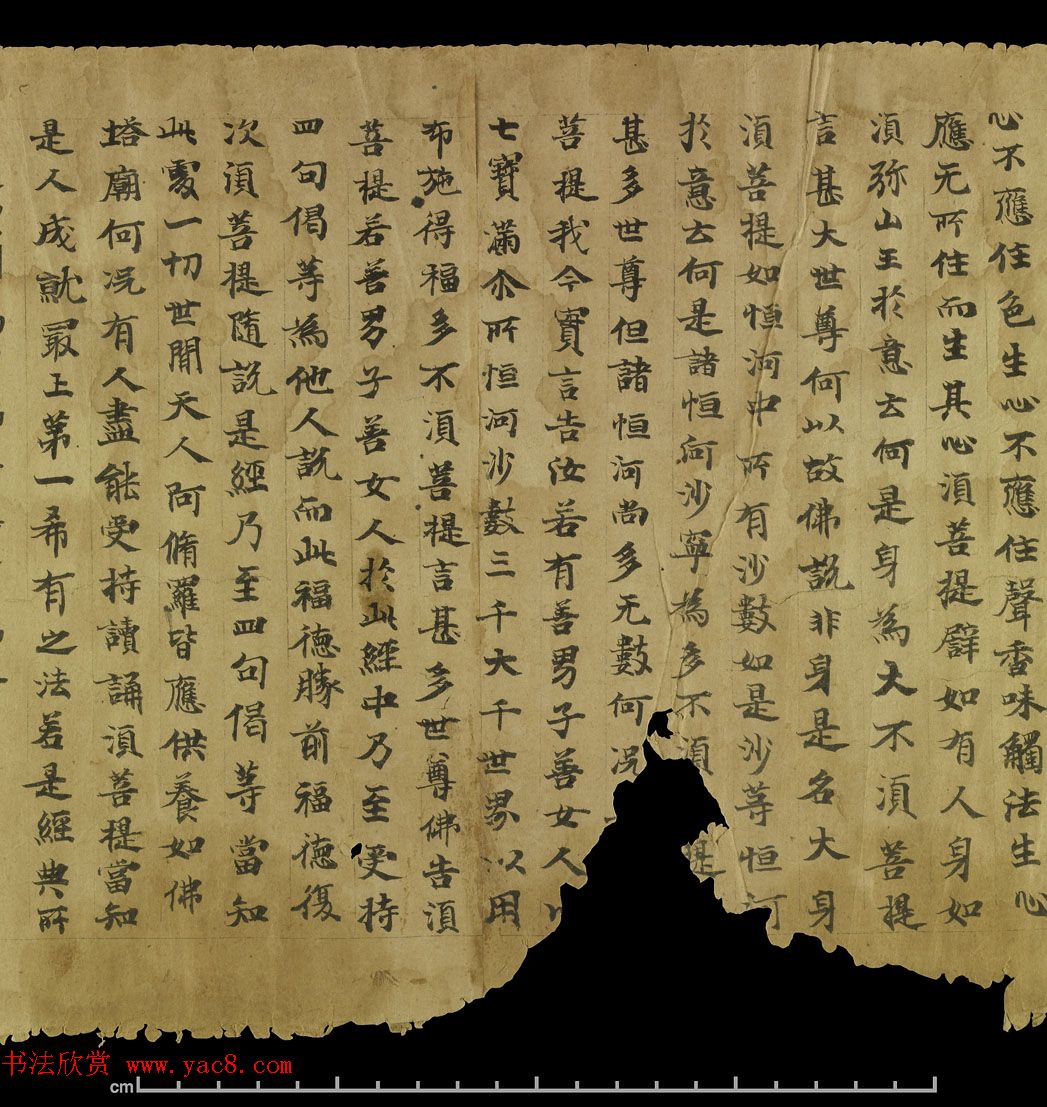 心不應住色生心不應住聲香味觸法生心
應无所住而生其心須菩提譬如有人身如
須弥山王於意云何是身為大不須菩提
言甚大世尊何以故佛說非身是名大身
須菩提如恒河中所有沙數如是沙等恒河
於意云何是諸恒河沙寧為多不須提
甚多世尊但諸恒河尚多无數何况
菩提我今實言告汝若有善男子善女人
七寶滿尒所恒河沙數三千大千世界以用
布施得福多不須菩提言甚多世尊佛告須
菩提若善男子善女人於此經中乃至受持
四句偈等為他人說而此福德勝前福德復
次須菩提隨說是經乃至四句偈等當知
此處一切世間天人阿脩羅皆應供養如佛
塔廟何况有人盡能受持讀誦須菩提當知
是人成就最上第一希有之法若是經典所
书法欣赏 www.yac8.com
cm